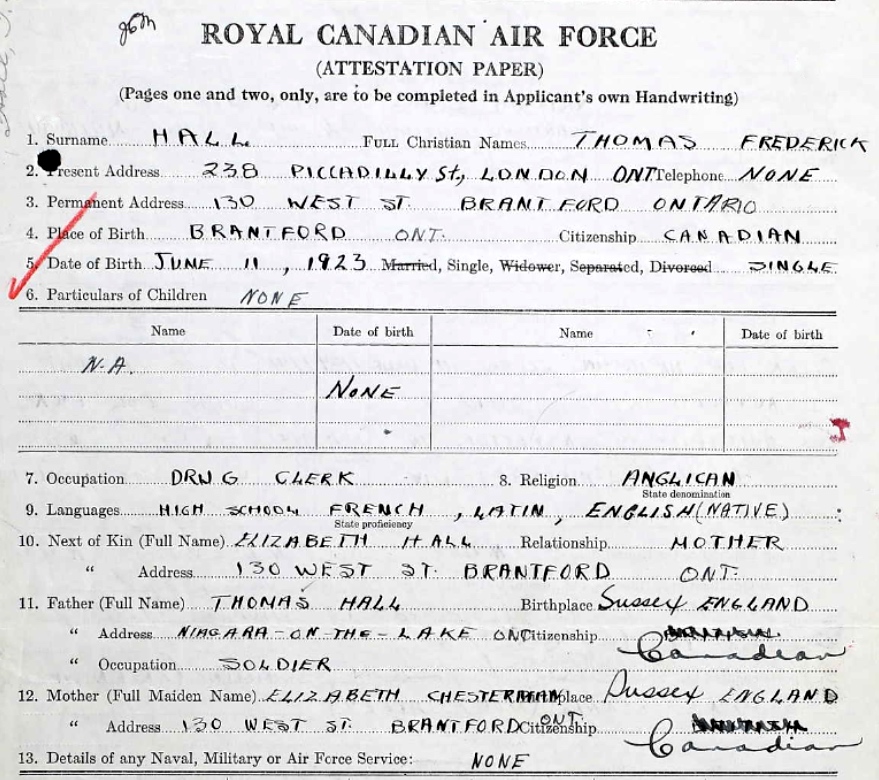 ROYAL CANADIAN AIR FORCE
(ATTESTATION PAPER)
(Pages one and two, only, are to be completed in Applicant's own Handwriting)
1. Surname HALL FULL Christian Names THOMAS FREDERICK
2. Present Address 238 PICCADILLY St, LONDON ONT Telephone NONE
3. Permanent Address 130 WEST ST. BRANTFORD ONTARIO
4. Place of Birth BRANTFORD ONT. Citizenship CANADIAN
5. Date of Birth JUNE 11, 1923 Married, Single, Widower, Separated, Divorced SINGLE
6. Particulars of Children NONE
Name Date of birth Name Date of birth
N.A.
NONE
7. Occupation DRUG CLERK 8. Religion ANGLICAN
State denomination
9. Languages HIGH SCHOOL FRENCH, LATIN, ENGLISH (NATIVE)
State proficiency
10. Next of Kin (Full Name) ELIZABETH HALL Relationship MOTHER
" Address 130 WEST ST. BRANTFORD ONT.
11. Father (Full Name) THOMAS HALL Birthplace Sussex ENGLAND
" Address NIAGARA-ON-THE-LAKE ONT Citizenship Canadian
" Occupation SOLDIER
12. Mother (Full Maiden Name) ELIZABETH CHESTERMAN place Sussex ENGLAND
" Address 130 WEST ST. BRANTFORD ONT. Citizenship Canadian
13. Details of any Naval, Military or Air Force Service: NONE